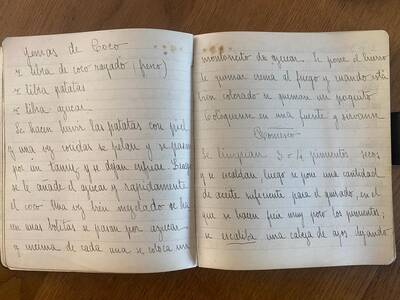 Yemas de Coco
1 libra de coco rayado (fresco)
1 libra patatas
1 libra azucar
Se hacen hervir las patatas con piel
y una vez cocidas se pelan y se pasan
por un tamiz y se dejan enfriar. Luego
se le añade el azucar y rapidamente
el coco. Una vez bien mezclado se ha
cen unas bolitas se pasan por azucar
y encima de cada una se coloca un
montoncito de azucar. Se pone el hierro
de quemar crema al fuego y cuando está
bien colorado se queman un poquito.
Coloquense en una fuente y sirvanse
Romesco
Se limpian 3 o 4 pimientos secos
y se escaldan, luego se pone una cantidad
de aceite suficiente para el guisado, en el
que se hacen freir muy poco los pimientos;
se escaliba una cabeza de ajos dejando